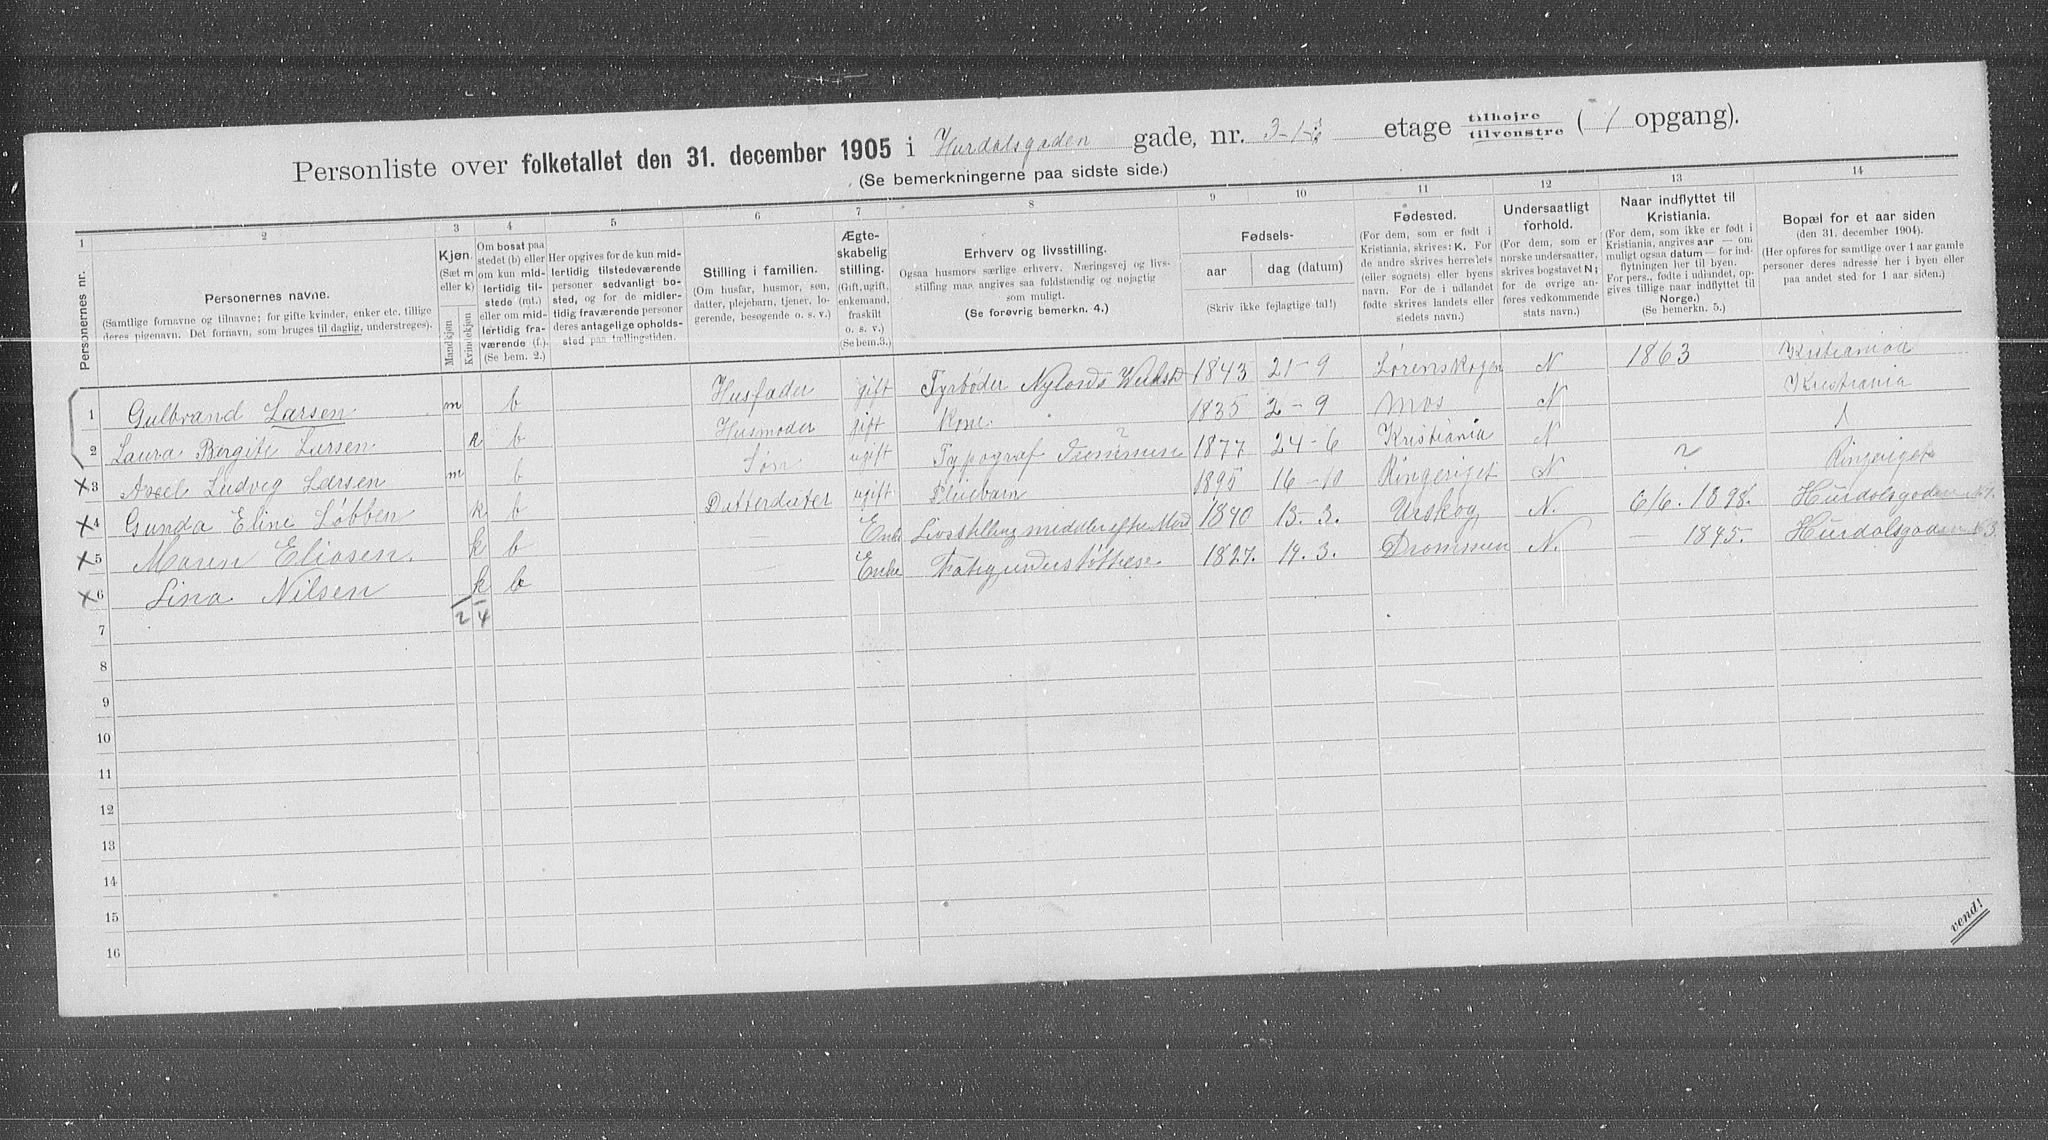 Personliste over folketallet den 31. december 1905 i Hurdalsgaden gade, nr. 3 etage tilhøjre tilvenstre ( 1 opgang).
(Se bemerkningerne paa sidste side.)
1 2 3 4 5 6 7 8 9 10 11 12 13 14
Personernes nr.
Personernes navne.
(Samtlige fornavne og tilnavne; for gifte kvinder, enker etc. tillige
deres pigenavn. Det fornavn, som bruges til daglig, understreges).
Kjøn.
(Sæt m
eller k)
Mandkjøn
Kvindekjøn
Om bosat paa
stedet (b) eller
om kun mid-
lertidig til-
stede (mt.)
eller om mid-
lertidig fra-
værende (f.).
(Se bem. 2.)
Her opgives for de kun mid-
lertidig tilstedeværende
personer sedvanligt bo-
sted, og for de midler-
tidig fraværende personer
deres antagelige opholds-
sted paa tællingstiden.
Stilling i familien.
(Om husfar, husmor, søn,
datter, plejebarn, tjener, lo-
gerende, besøgende o. s. v.)
Ægte-
skabelig
stilling.
(Gift, ugift,
enkemand,
fraskilt
o. s. v.)
(Se bem. 3.)
Erhverv og livsstilling.
Ogsaa husmors særlige erhverv. Næringsvej og livs-
stilling maa angives saa fuldstændig og nøjagtig
som muligt.
(Se forøvrig bemerkn. 4.)
Fødsels-
aar
dag (datum)
(Skriv ikke fejlagtige tal!)
Fødested.
(For dem, som er født i
Kristiania, skrives: K. For
de andre skrives herredets
(eller sognets) eller byens
navn. For de i udlandet
fødte skrives landets eller
stedets navn.)
Undersaatligt
forhold.
(For dem, som er
norske undersaatter,
skrives bogstavet N;
for de øvrige an-
føres vedkommende
stats navn.)
Naar indflyttet til
Kristiania.
(For dem, som ikke er født i
Kristiania, angives aar — om
muligt ogsaa datum — for ind-
flytningen her til byen.
For pers., fødte i udlandet, op-
gives tillige naar indflyttet til
Norge.)
(Se bemerkn. 5.)
Bopæl for et aar siden
(den 31. december 1904).
(Her opføres for samtlige over 1 aar gamle
personer deres adresse her i byen eller
paa andet sted for 1 aar siden.)
1 Gulbrand Larsen m b Husfader gift Fyrbøder Nylands 1843 21-9 Lørenskogen N 1863 Kristiania
2 Laura Bergite Larsen k b Husmoder gift Kone 1835 2-9 Mos N Kristiania
x3 Axel Ludvig Larsen m b Søn ugift Typograf ? 1877 24-6 Kristiania N
x4 Gunda Eline Løbben k b Datterdatter ugift 1895 16-10 Ringeriget N ? Ringeriget
x5 Maren Eliasen. k b — Enke Livsstilling midler efter Mand 1840 13.3. Urskog N. 6/6. 1898. Hurdalsgaden
x6 Lina Nilsen k b — Enke Fatigunderstøttelse 1827. 19.3. Drammen N. — 1895. Hurdalsgaden 3
2 4
7
8
9
10
11
12
13
14
15
16
vend!